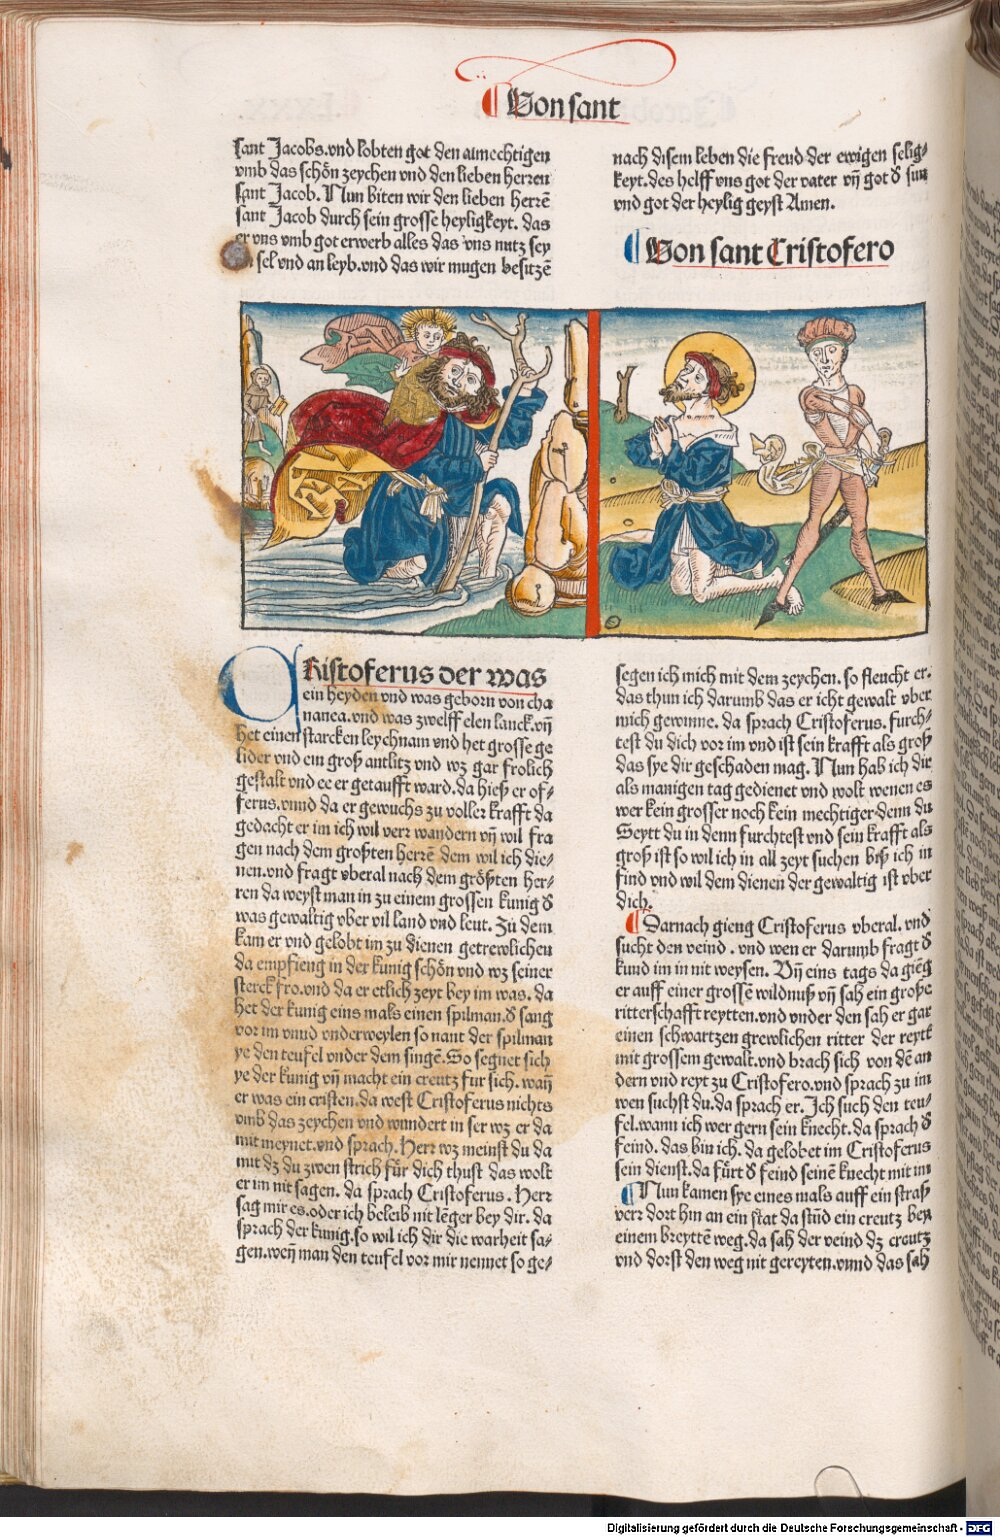 Von sant
sant Jacobs. vnd lobten got den almechtigen
vmb das schön zeychen vnd den lieben herren
sant Jacob. Nun biten wir den lieben herrē
sant Jacob durch sein grosse heyligkeyt. das
er vns vmb got erwerb alles das vns nutz sey
sel vnd an leyb. vnd das wir mugen besitzē
nach disem leben die freud der ewigen selig⸗
keyt. des helff vns got der vater vñ got d sun
vnd got der heylig geyst Amen.
Von sant Cristofero
CRistoferus der was
ein heyden vnd was geborn von cha
nanea. vnd was zwelff elen lanck. vñ
het einen starcken leychnam vnd het grosse ge
lider vnd ein groß antlitz vnd wz gar frolich
gestalt vnd ee er getaufft ward. da hieß er of⸗
ferus. vnnd da er gewuchs zu voller krafft da
gedacht er im ich wil verr wandern vñ wil fra
gen nach dem großten herrē dem wil ich die⸗
nen. vnd fragt vberal nach dem größten her⸗
ren da weyst man in zu einem grossen kunig d
was gewaltig vber vil land vnd leut. Zů dem
kam er vnd gelobt im zu dienen getrewlichen
da empfieng in der kunig schön vnd wz seiner
sterck fro. vnd da er etlich zeyt bey im was. da
het der kunig eins mals einen spilman. d sang
vor im vnnd vnderweylen so nant der spilman
ye den teufel vnder dem singē. So segnet sich
ye der kunig vñ macht ein creutz fur sich. wañ
er was ein cristen. da west Cristoferus nichts
vmb das zeychen vnd wundert in ser wz er da
mit meynet. vnd sprach. Herr wz meinst du da
mit dz du zwen strich für dich thust das wolt
er im nit sagen. da sprach Cristoferus. Herr
sag mir es. oder ich beleib nit lēger bey dir. da
sprach der kunig. so wil ich dir die warheit sa⸗
gen. weñ man den teufel vor mir nennet so ge⸗
segen ich mich mit dem zeychen. so fleucht er.
das thun ich darumb das er icht gewalt vber
mich gewinne. da sprach Cristoferus. furch⸗
test du dich vor im vnd ist sein krafft als groß
das sye dir geschaden mag. Nun hab ich dir
als manigen tag gedienet vnd wolt wenen es
wer kein grosser noch kein mechtiger denn du
Seytt du in denn furchtest vnd sein krafft als
groß ist so wil ich in all zeyt suchen biß ich in
find vnd wil dem dienen der gewaltig ist vber
dich.
Darnach gieng Cristoferus vberal. vnd
sucht den veind. vnd wen er darumb fragt d
kund im in nit weysen. Vñ eins tags da giēg
er auff einer grossē wildnuß vñ sah ein große
ritterschafft reytten. vnd vnder den sah er gar
einen schwartzen grewlichen ritter der reytt
mit grossem gewalt. vnd brach sich von dē an
dern vnd reyt zu Cristofero. vnd sprach zu im
wen suchst du. da sprach er. Ich such den teu⸗
fel. wann ich wer gern sein knecht. da sprach d
feind. das bin ich. da gelobet im Cristoferus
sein dienst. da fůrt d feind seinē knecht mit im
Nun kamen sye eines mals auff ein straß
verr dort hin an ein stat da stůd ein creutz bey
einem breyttē weg. da sah der veind dz creutz
vnd dorst den weg nit gereyten. vnnd das sah
Digitalisierung gefördert durch die Deutsche Forschungsgemeinschaft - DFG